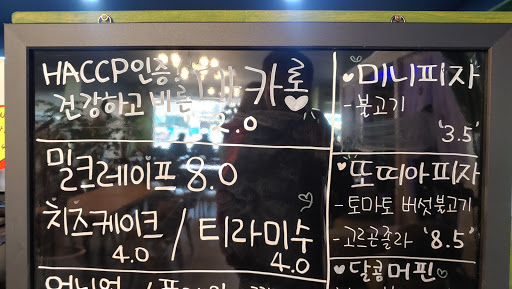 HACCP인증!
건강하고 바른 마카롱
2.0
밀크레이프 8.0
치즈케이크 / 티라미수
4.0 4.0
미니피자
- 불고기
'3.5'
또띠아피자
- 토마토 버섯불고기
- 고르곤졸라 '8.5'
달콤머핀